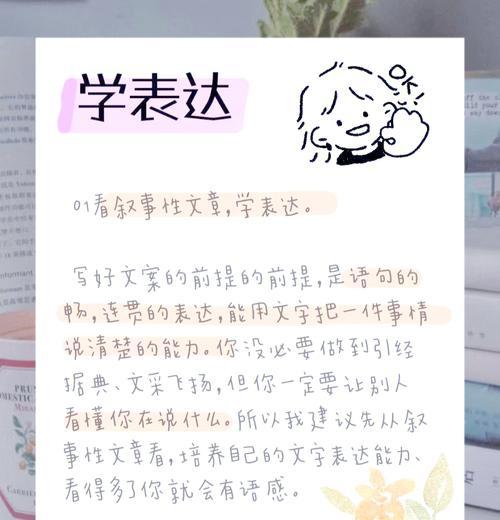 学表达
OK!
01看叙事性文章,学表达。
写好文案的前提的前提,是语句的
畅,连贯的表达,能用文字把一件事情
说清楚的能力。你没必要做到引经
据典、文采飞扬,但你一定要让别人
看懂你在说什么。所以我建议先从叙
事性文章看,培养自己的文字表达能力、
看得多了你就会有语感。